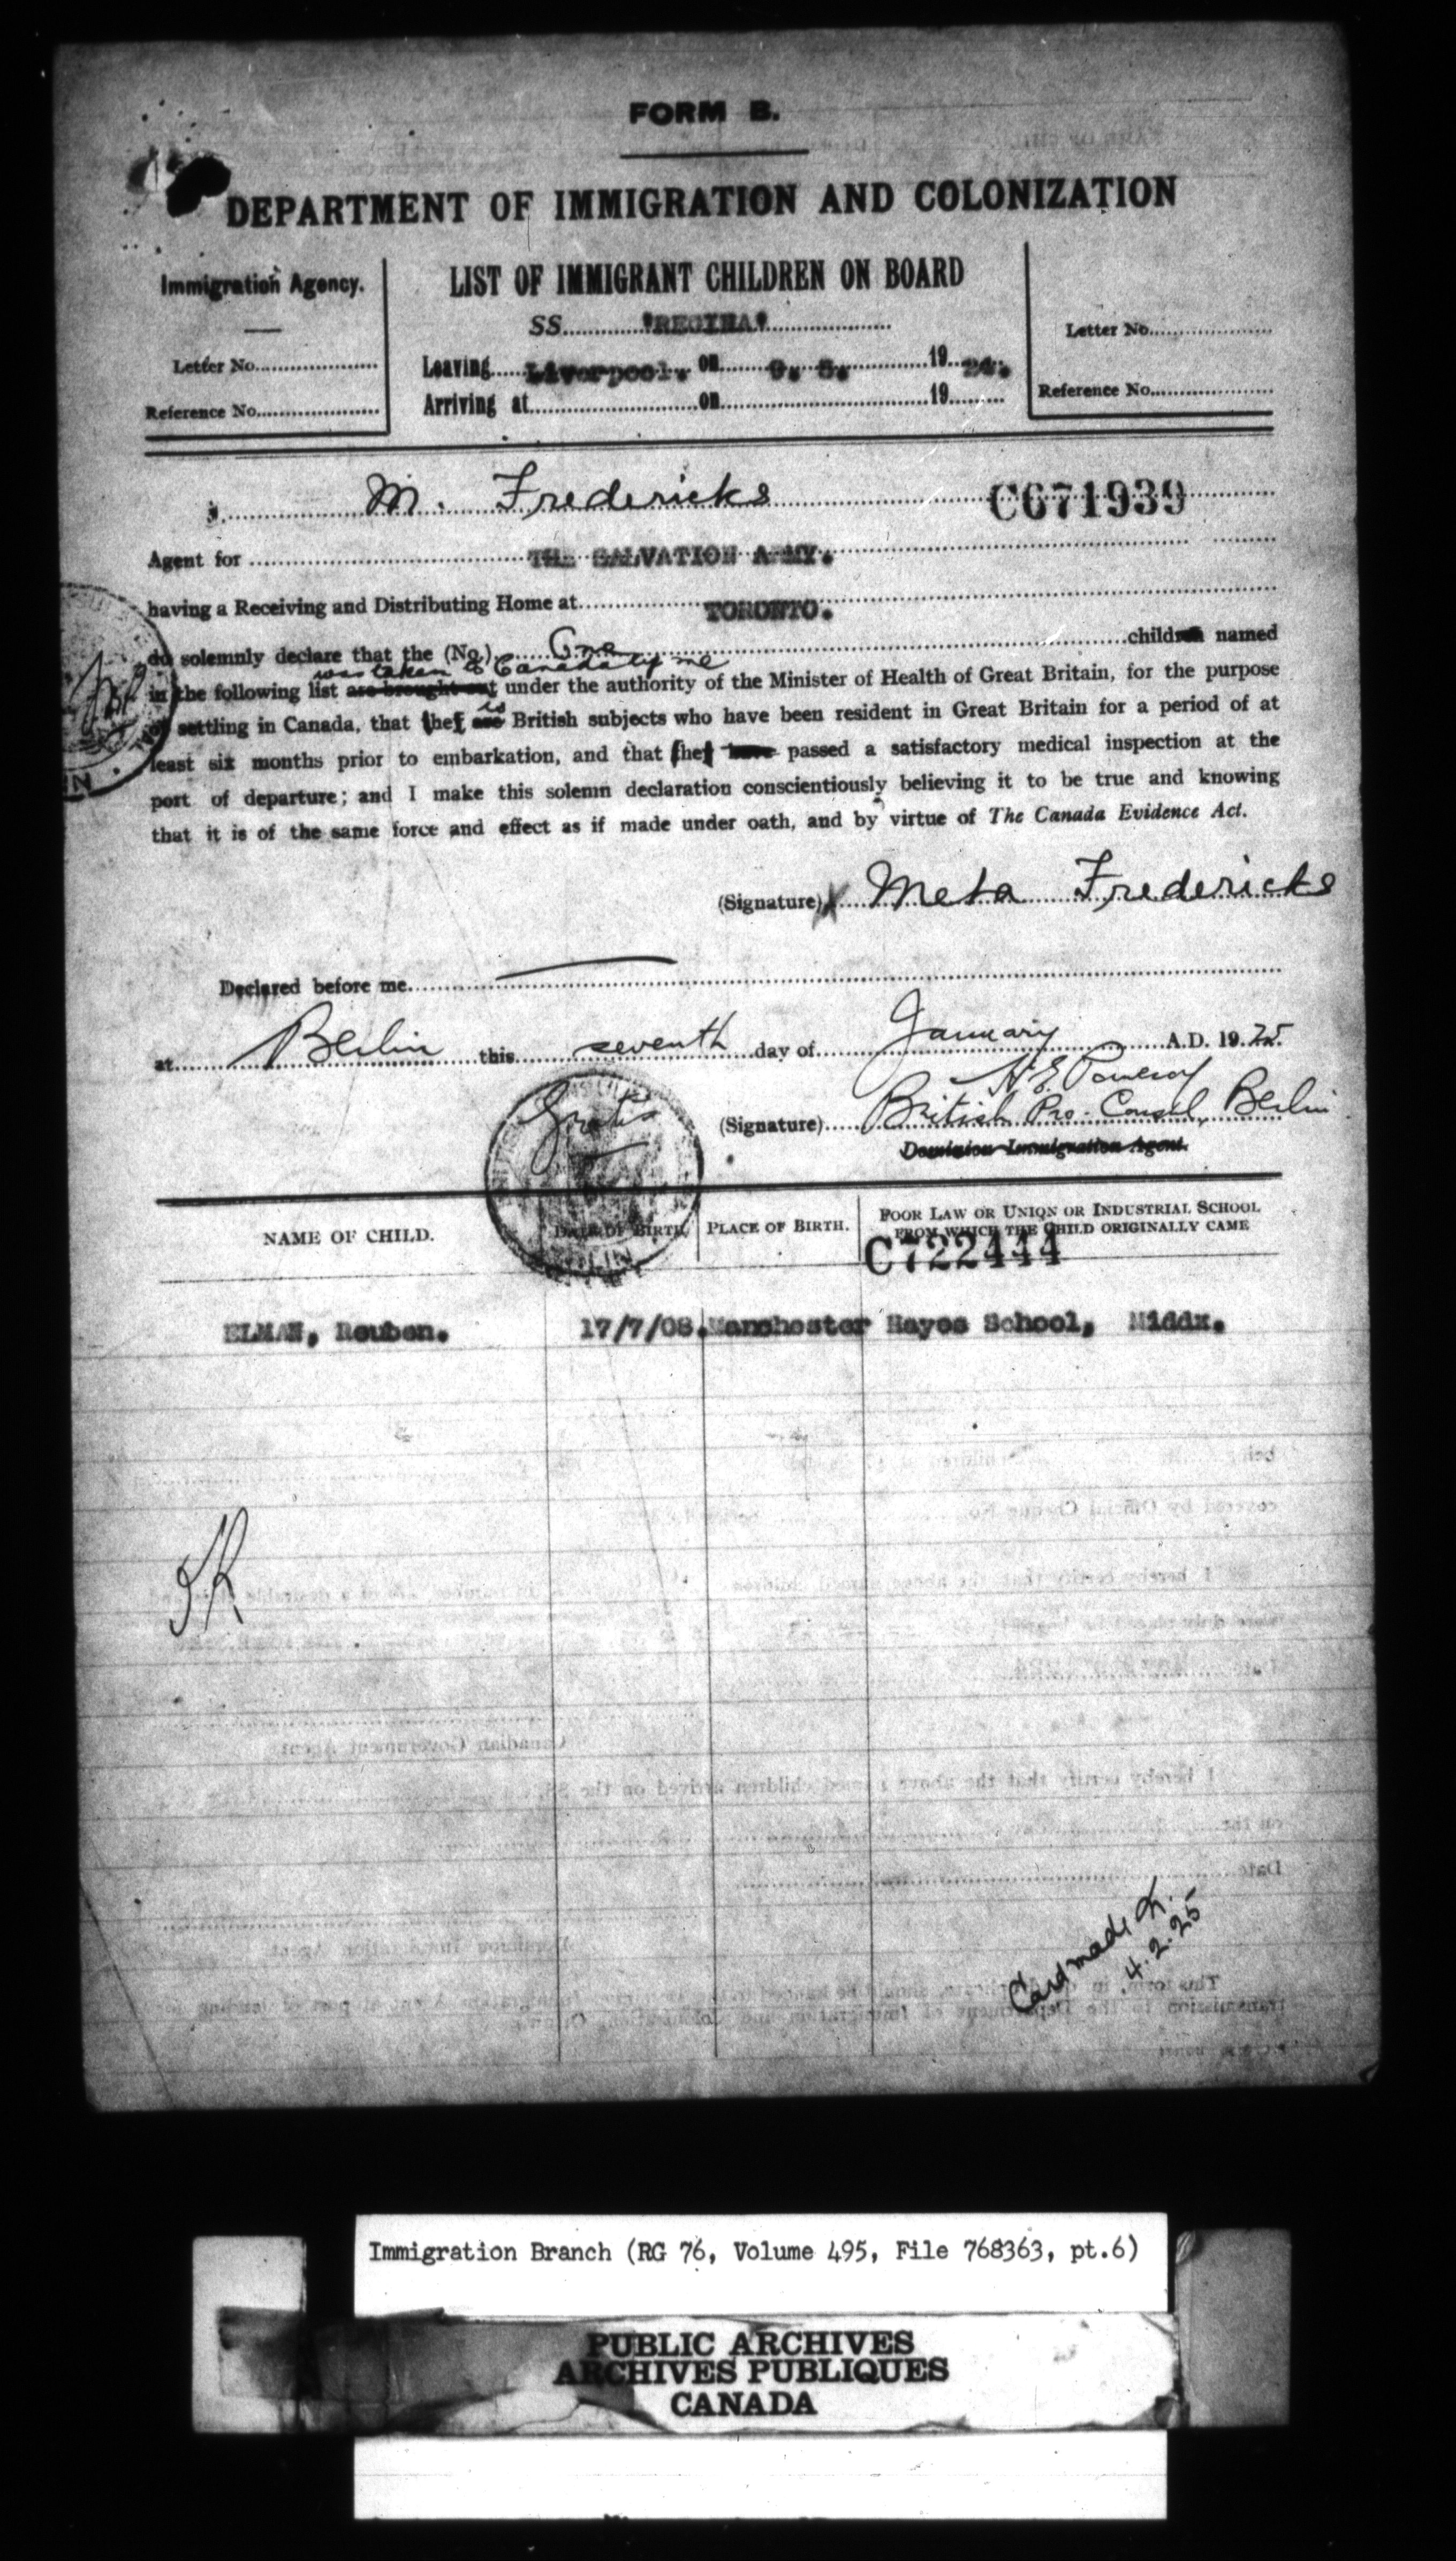 FORM B.
DEPARTMENT OF IMMIGRATION AND COLONIZATION
Immigration Agency.
Letter No.
Reference No.
LIST OF IMMIGRANT CHILDREN ON BOARD
SS. "REGINA"
Leaving Liverpool. on 9. 5. 1924.
Arriving at on 19
Letter No.
Reference No.
I, M. Fredericks C671939
Agent for THE SALVATION ARMY.
having a Receiving and Distributing Home at TORONTO.
do solemnly declare that the (No.) One children named
was taken to Canada by me
in the following list are brought out under the authority of the Minister of Health of Great Britain, for the purpose
is
of settling in Canada, that they are British subjects who have been resident in Great Britain for a period of at
least six months prior to embarkation, and that they have passed a satisfactory medical inspection at the
port of departure; and I make this solemn declaration conscientiously believing it to be true and knowing
that it is of the same force and effect as if made under oath, and by virtue of The Canada Evidence Act.
(Signature) X Meta Fredericks
Declared before me
at Berlin this seventh day of January A.D. 1925.
H.E. Pomeroy
(Signature) British Pro-Consul, Berlin
Dominion Immigration Agent.
Gratis
NAME OF CHILD.
DATE OF BIRTH.
PLACE OF BIRTH.
POOR LAW OR UNION OR INDUSTRIAL SCHOOL
FROM WHICH THE CHILD ORIGINALLY CAME
C722444
ELMAN, Reuben. 17/7/08. Manchester Hayes School, Middx.
Card made
4.2.25
Immigration Branch (RG 76, Volume 495, File 768363, pt.6)
PUBLIC ARCHIVES
ARCHIVES PUBLIQUES
CANADA